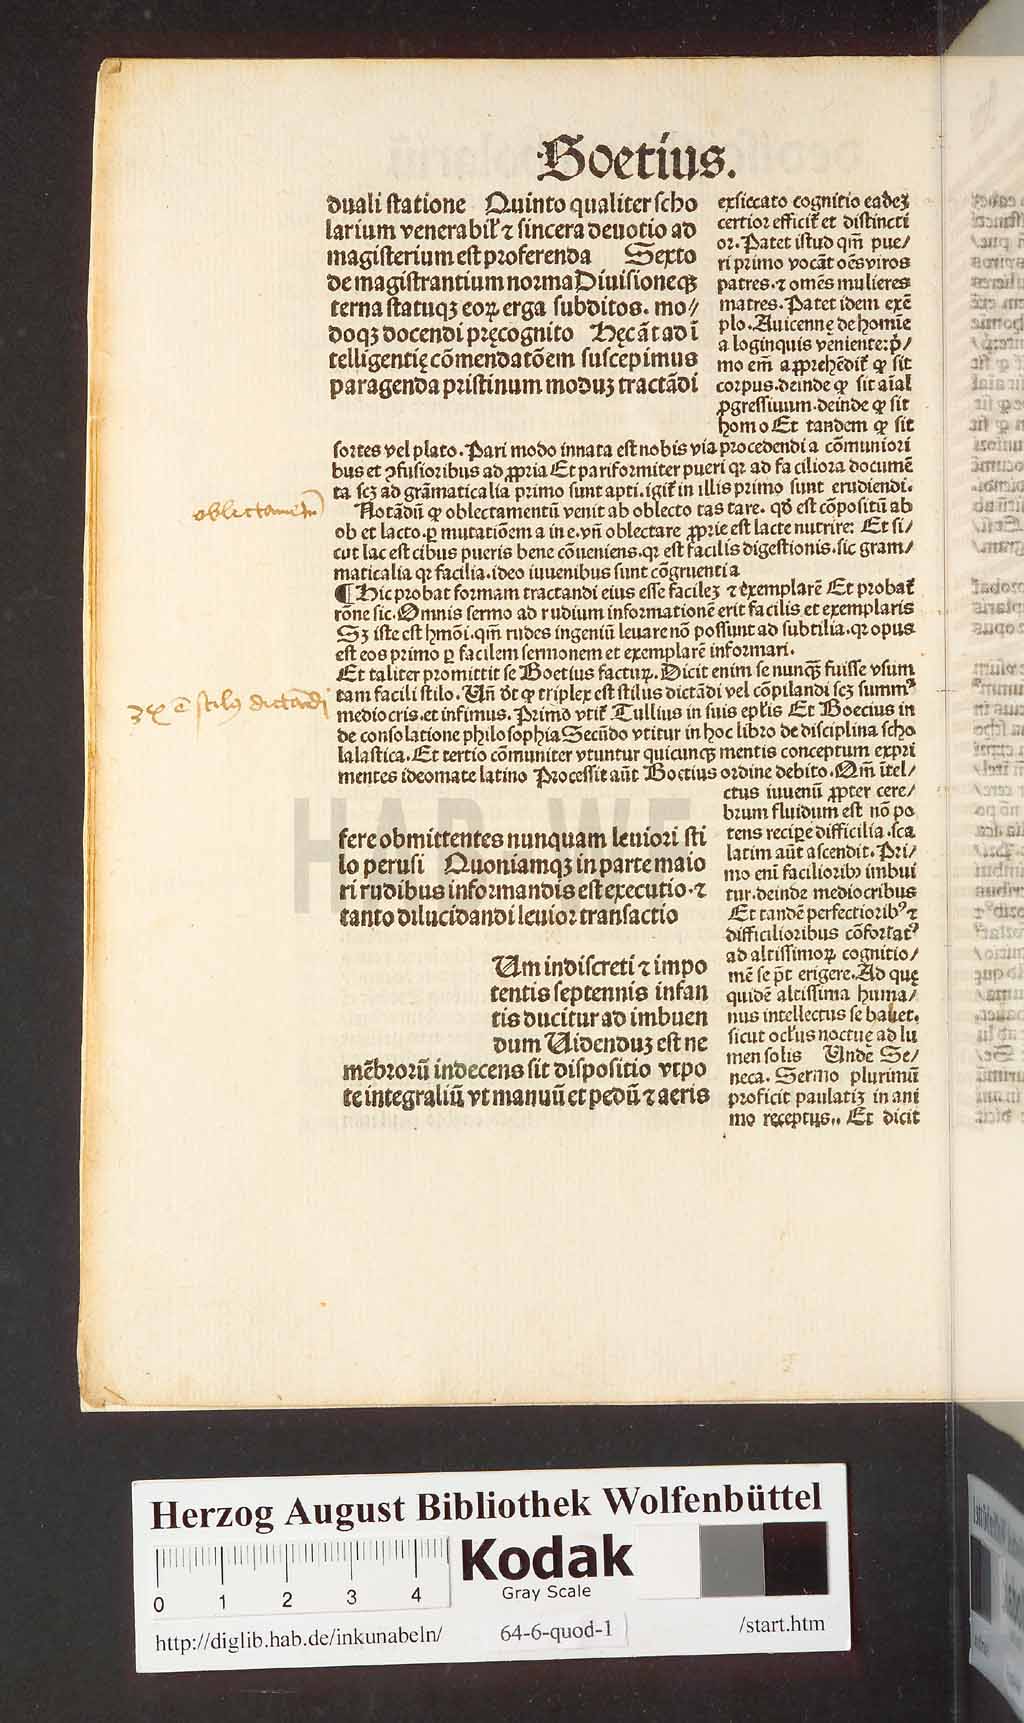 Boetius.
duali statione Quinto qualiter scho
larium venerabilꝭ ⁊ sincera deuotio ad
magisterium est proferenda Sexto
de magistrantium norma Diuisioneqꝫ
terna statuqꝫ eoꝝ erga subditos. mo⸗
doqꝫ docendi pręcognito Hęc āt ad ī
telligentię cōmendatōem suscepimus
paragenda pristinum moduꝫ tractādi
exsiccato cognitio eadeꝫ
certior efficit᷑ et distincti
or. Patet istud qm̄ pue/
ri primo vocāt oēs viros
patres. ⁊ omēs mulieres
matres. Patet idem exē
plo. Auicennę de homīe
a loginquis veniente: p̄/
mo em̄ apprehēdit᷑ ꝙ sit
corpus. deinde ꝙ sit aīal
ꝓgressiuum. deinde ꝙ sit
homo Et tandem ꝙ sit
sortes vel plato. Pari modo innata est nobis via procedendi a cōmuniori
bus et ꝯfusioribus ad ꝓpria Et pariformiter pueri qꝛ ad faciliora documē
ta scꝫ ad grāmaticalia primo sunt apti. igit᷑ in illis primo sunt erudiendi.
Notādū ꝙ oblectamentū venit ab oblecto tas tare. qd̄ est cōpositū ab
ob et lacto. ꝑ mutatiōem a in e. vn̄ oblectare ꝓprie est lacte nutrire: Et si/
cut lac est cibus pueris bene cōueniens. qꝛ est facilis digestionis. sic gram/
maticalia qꝛ facilia. ideo iuuenibus sunt cōgruentia
¶ Hic probat formam tractandi eius esse facileꝫ ⁊ exemplarē Et probat᷑
rōne sic. Omnis sermo ad rudium informationē erit facilis et exemplaris
Sꝫ iste est hmōi. qm̄ rudes ingeniū leuare nō possunt ad subtilia. qꝛ opus
est eos primo ꝑ facilem sermonem et exemplarē informari.
Et taliter promittit se Boetius facturꝝ. Dicit enim se nunqꝫ fuisse vsum
tam facili stilo. Vn̄ dt̄ ꝙ triplex est stilus dictādi vel cōpilandi scꝫ summꝰ
mediocris. et infimus. Primo vtit᷑ Tullius in suis epl̄is Et Boecius in
de consolatione philosophia Secūdo vtitur in hoc libro de disciplina scho
lalastica. Et tertio cōmuniter vtuntur quicunqꝫ mentis conceptum expri
mentes ideomate latino Processit aūt Boetius ordine debito. Qm̄ ītel/
ctus iuuenū ꝓpter cere/
brum fluidum est nō po
tens recipe difficilia. sca
latim aūt ascendit. Pri/
mo eni facilioribꝫ imbui
tur. deinde mediocribus
Et tandē perfectioribꝰ ⁊
difficilioribus cōfortatꝰ
ad altissimoꝝ cognitio/
mē se pt̄ erigere. Ad quę
quidē altissima huma/
nus intellectus se habet.
sicut ocl̄us noctuę ad lu
men solis Unde Se/
neca. Sermo plurimū
proficit paulatiꝫ in ani
mo receptus.. Et dicit
fere obmittentes nunquam leuiori sti
lo perusi Quoniamqꝫ in parte maio
ri rudibus informandis est executio. ⁊
tanto dilucidandi leuior transactio
Um indiscreti ⁊ impo
tentis septennis infan
tis ducitur ad imbuen
dum Uidenduꝫ est ne
mēbrorū indecens sit dispositio vtpo
te integraliū vt manuū et pedū ⁊ aeris
oblectamentum
3x ē stilꝰ dictandi
Herzog August Bibliothek Wolfenbüttel
Kodak
Gray Scale
0 1 2 3 4
http://diglib.hab.de/inkunabeln/ 64-6-quod-1 /start.htm
HAB-WF